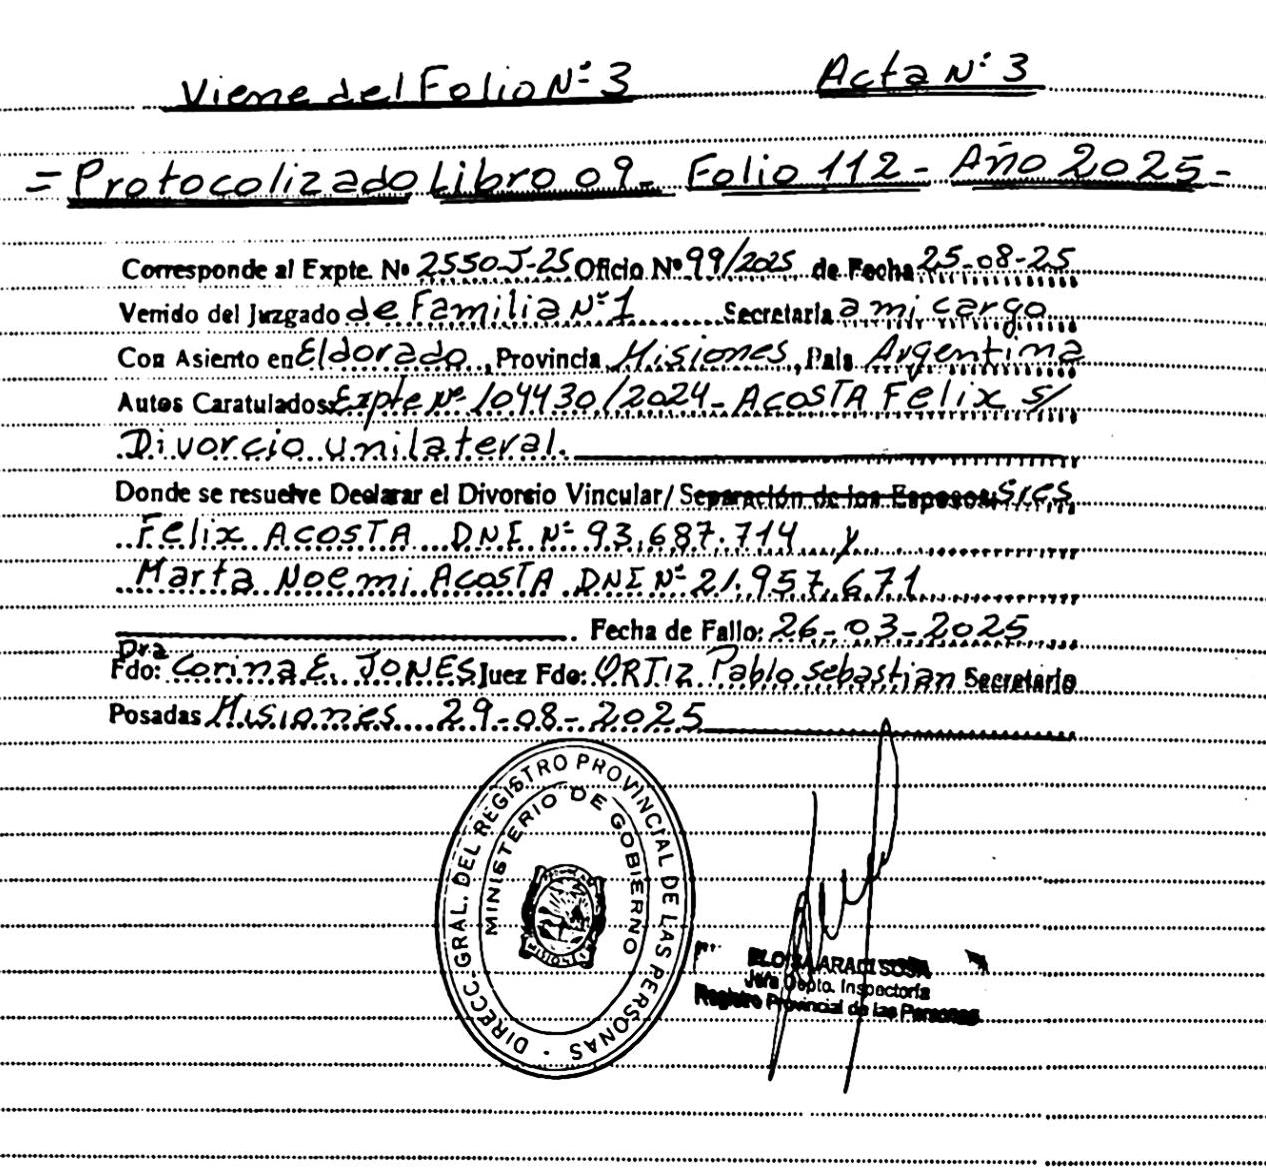 Viene del Folio Nº 3 Acta Nº 3
= Protocolizado Libro 09- Folio 112- Año 2025-
Corresponde al Expte. Nº 2550J-25 Oficio Nº 99/2025 de Fecha 25-08-25
Venido del Juzgado de Familia Nº 1 Secretaria a mi cargo
Con Asiento en Eldorado, Provincia Misiones, País Argentina
Autos Caratulados: Expte Nº 104430/2024- ACOSTA Felix s/
Divorcio unilateral.
Donde se resuelve Declarar el Divorcio Vincular/ Separación de los Esposos: Sres
Felix ACOSTA DNI Nº 93.687.714 y
Marta Noemi ACOSTA DNI Nº 21.957.671
. Fecha de Fallo: 26-03-2025
Fdo: Dra Corina E. JONES Juez Fdo: ORTIZ Pablo Sebastian Secretario
Posadas Misiones 29-08-2025
DIRECC. GRAL. DEL REGISTRO PROVINCIAL DE LAS PERSONAS
MINISTERIO DE GOBIERNO
MISIONES
ELOISA ARACI SOSA
Jefa Depto. Inspectoría
Registro Provincial de las Personas